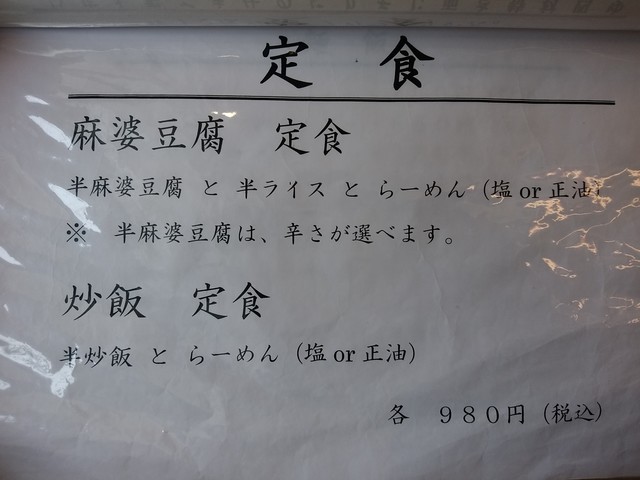 定 食
麻婆豆腐 定食
半麻婆豆腐 と 半ライス と らーめん（塩 or 正油）
※ 半麻婆豆腐は、辛さが選べます。
炒飯 定食
半炒飯 と らーめん（塩 or 正油）
各 ９８０円（税込）